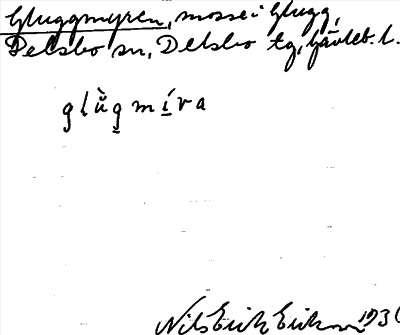 Gluggmyren, mosse i Glugg,
Delsbo sn, Delsbo tg, Gävleb. l.
glu̇̀g̮ mí̲va
Nils Erik Erikson 193